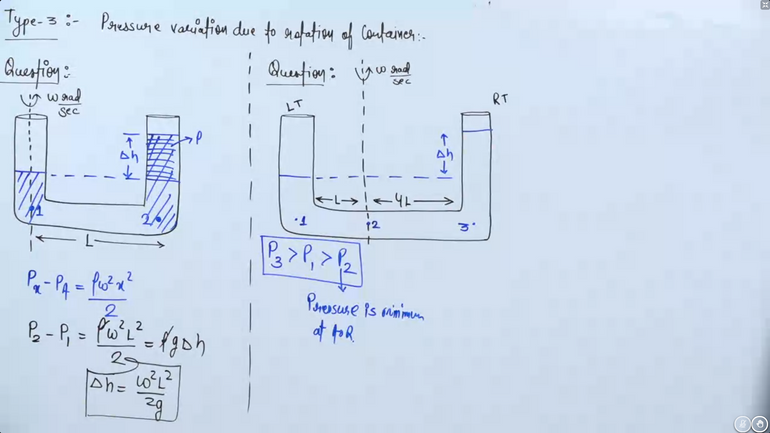 Type-3 :- Pressure variation due to rotation of Container:-
Question:
ω rad/sec
Δh
ρ
1
2
L
Px - PA = ρω²x²/2
P2 - P1 = ρω²L²/2 = ρgΔh
Δh = ω²L²/2g
Question:
ω rad/sec
LT
RT
Δh
L
4L
1
2
3
P3 > P1 > P2
Pressure is minimum
at AOR